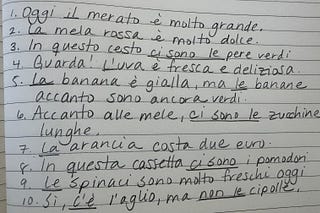 1. Oggi il merato è molto grande.
2. La mela rossa è molto dolce.
3. In questo cesto ci sono le pere verdi
4. Guarda! L'uva è fresca e deliziosa.
5. La banana è gialla, ma le banane
accanto sono ancora verdi.
6. Accanto alle mele, ci sono le zucchine
lunghe.
7. La arancia costa due euro.
8. In questa cassetta ci sono i pomodori
9. Le Spinaci sono molto freschi oggi
10. Sì, c'è l'aglio, ma non le cipolle.